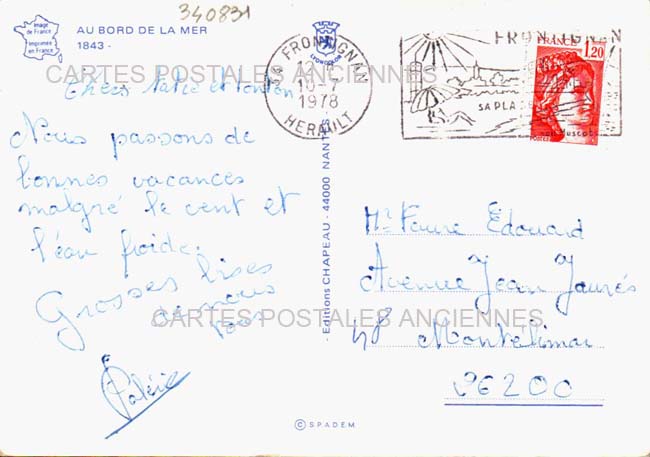 340831
Image
de France
Imprimée
en France
AU BORD DE LA MER
1843 -
LYONCOLOR
34 FRONTIGNAN
10-7
1978
HERAULT
FRONTIGNAN
SA PLAGE
son Muscat
FRANCE
1,20
POSTES
CARTES POSTALES ANCIENNES
Chers Tatie et Tonton
Nous passons de
bonnes vacances
malgré le vent et
l'eau froide.
Grosses bises
de nous
tous
Valérie
- Editions CHAPEAU - 44000 NANTES -
Mr Faure Edouard
Avenue Jean Jaurés
48 Montélimar
26200
CARTES POSTALES ANCIENNES
© SPADEM